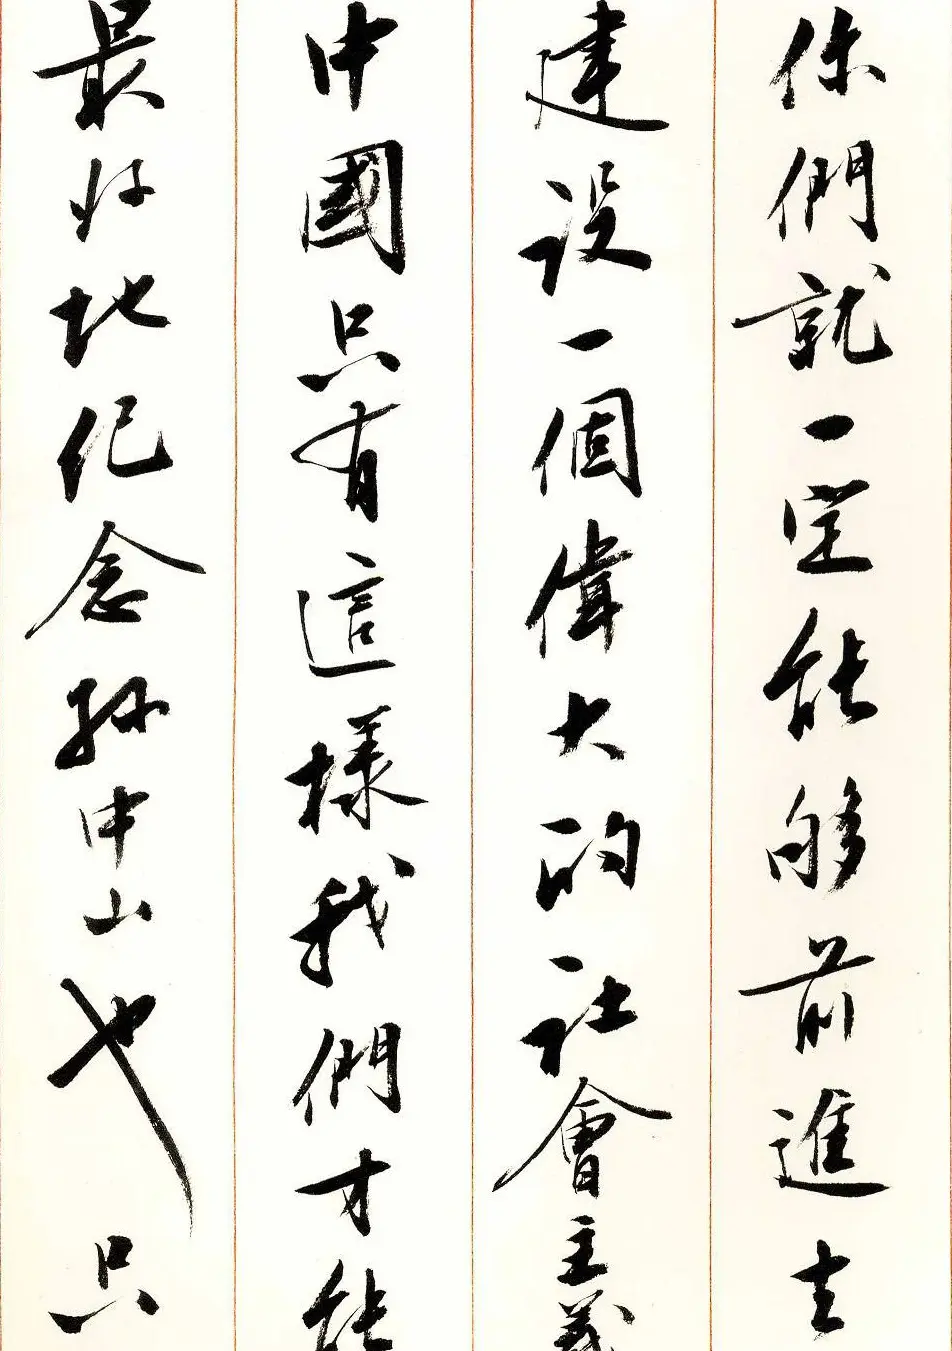 你們就一定能够前進去
建設一個偉大的社會主義
中國只有這樣我們才能
最好地纪念孫中山也只